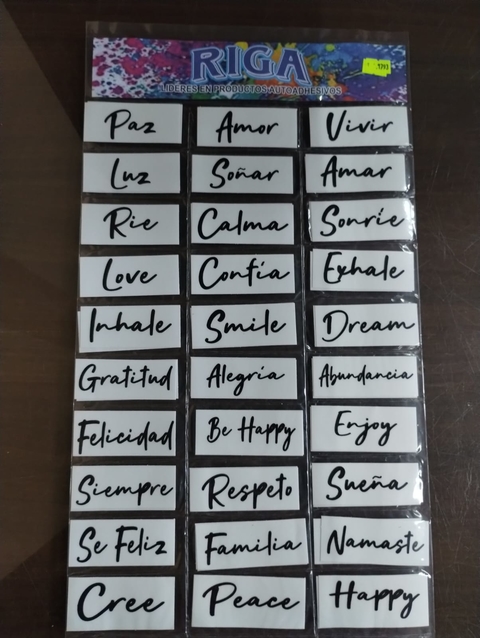 RIGA
LIDERES EN PRODUCTOS AUTOADHESIVOS
Paz Amor Vivir
Luz Soñar Amar
Rie Calma Sonríe
Love Confía Exhale
Inhale Smile Dream
Gratitud Alegría Abundancia
Felicidad Be Happy Enjoy
Siempre Respeto Sueña
Se Feliz Familia Namaste
Cree Peace Happy